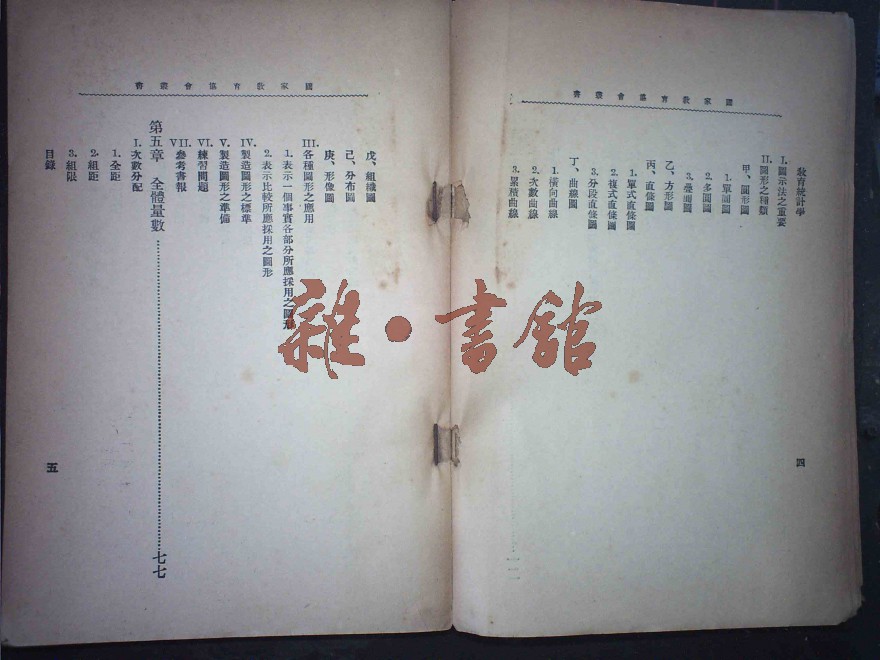 國家教育協會叢書
教育統計學
I. 圖示法之重要
II 圖形之種類
甲、圓形圖
1. 單圓圖
2. 多圓圖
3. 疊圓圖
乙、方形圖
丙、直條圖
1. 單式直條圖
2. 複式直條圖
3. 分段直條圖
丁、曲線圖
1. 橫向曲線
2. 次數曲線
3. 累積曲線
四
國家教育協會叢書
戊、組織圖
己、分布圖
庚、形像圖
III. 各種圖形之應用
1. 表示一個事實各部分所應採用之圖形
2. 表示比較所應採用之圖形
IV. 製造圖形之標準
V. 製造圖形之準備
VI. 練習問題
VII. 參考書報
第五章 全體量數……七七
I. 次數分配
1. 全距
2. 組距
3. 組限
目錄
五
雜·書館